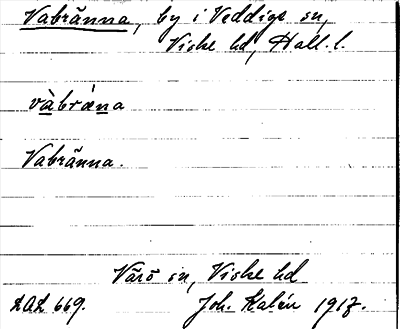 Vabränna, by i Veddige sn,
Viske hd, Hall. l.
vàbræ̀na
Vabränna.
Värö sn, Viske hd
LAL 669. Joh. Kalén 1917.